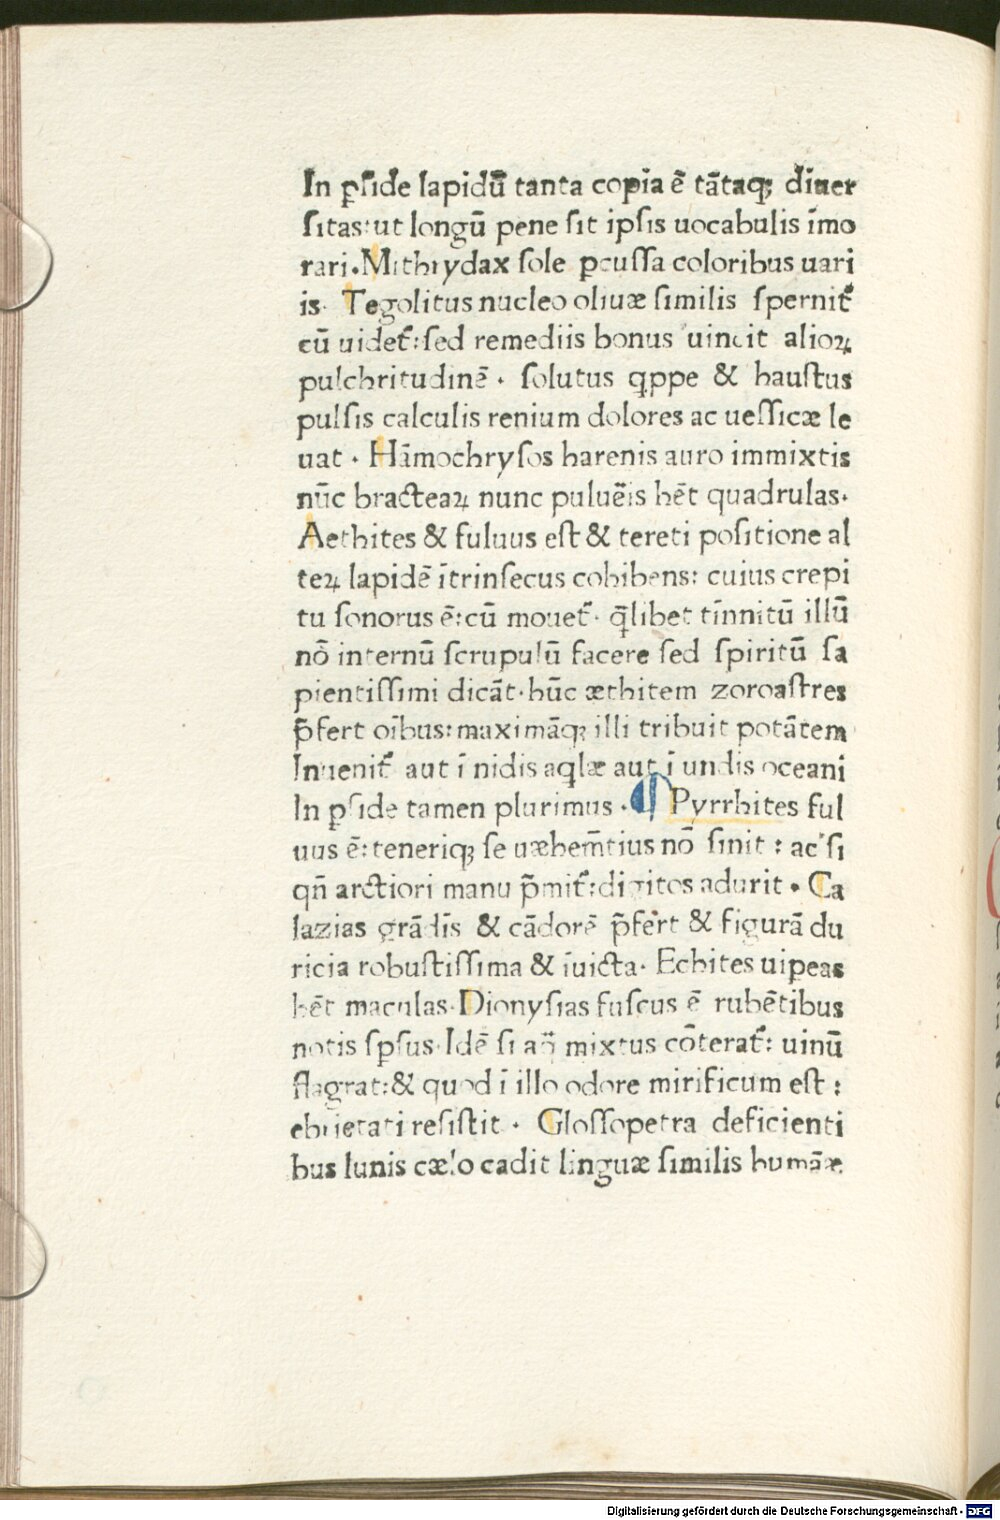 In ꝑſide lapidū tanta copia ē tātaqꝫ diuer
ſitas:ut longū pene ſit ipſis uocabulis īmo
rari.Mithrydax ſole ꝑcuſſa coloribus uari
is. Tegolitus nucleo oliuæ ſimilis ſpernit᷑
cū uidet᷑:ſed remediis bonus uincit alioꝝ
pulchritudinē . ſolutus qꝑpe & hauſtus
pulſis calculis renium dolores ac ueſſicæ le
uat . Hāmochryſos harenis auro immixtis
nūc bracteaꝝ nunc puluēis hēt quadrulas.
Aethites & fuluus eſt & tereti poſitione al
teꝝ lapidē ītrinſecus cohibens: cuius crepi
tu ſonorus ē:cū mouet᷑. q̄libet tīnnitū illū
nō internū ſcrupulū facere ſed ſpiritū ſa
pientiſſimi dicāt.hūc æthitem zoroaſtres
p̄fert oībus:maximāqꝫ illi tribuit potātem
Inuenit᷑ aut ī nidis aq̄læ aut ī undis oceani
In ꝑſide tamen plurimus . ¶ Pyrrhites ful
uus ē:teneriqꝫ ſe uæhem̄tius nō ſinit : ac ſi
qn̄ arctiori manu p̄mit᷑:digitos adurit . Ca
lazias grādīs & cādorē p̄fert & figurā du
ricia robuſtiſſima & īuicta. Echites uiꝑeas
hēt maculas.Dionyſias fuſcus ē rubētibus
notis ſꝑſus.Idē ſi aq̄ mixtus cōterat᷑: uinū
flagrat:& quod ī illo odore mirificum eſt :
ebrietati reſiſtit . Gloſſopetra deficienti
bus lunis cælo cadit linguæ ſimilis humāæ
Digitalisierung gefördert durch die Deutsche Forschungsgemeinschaft - DFG